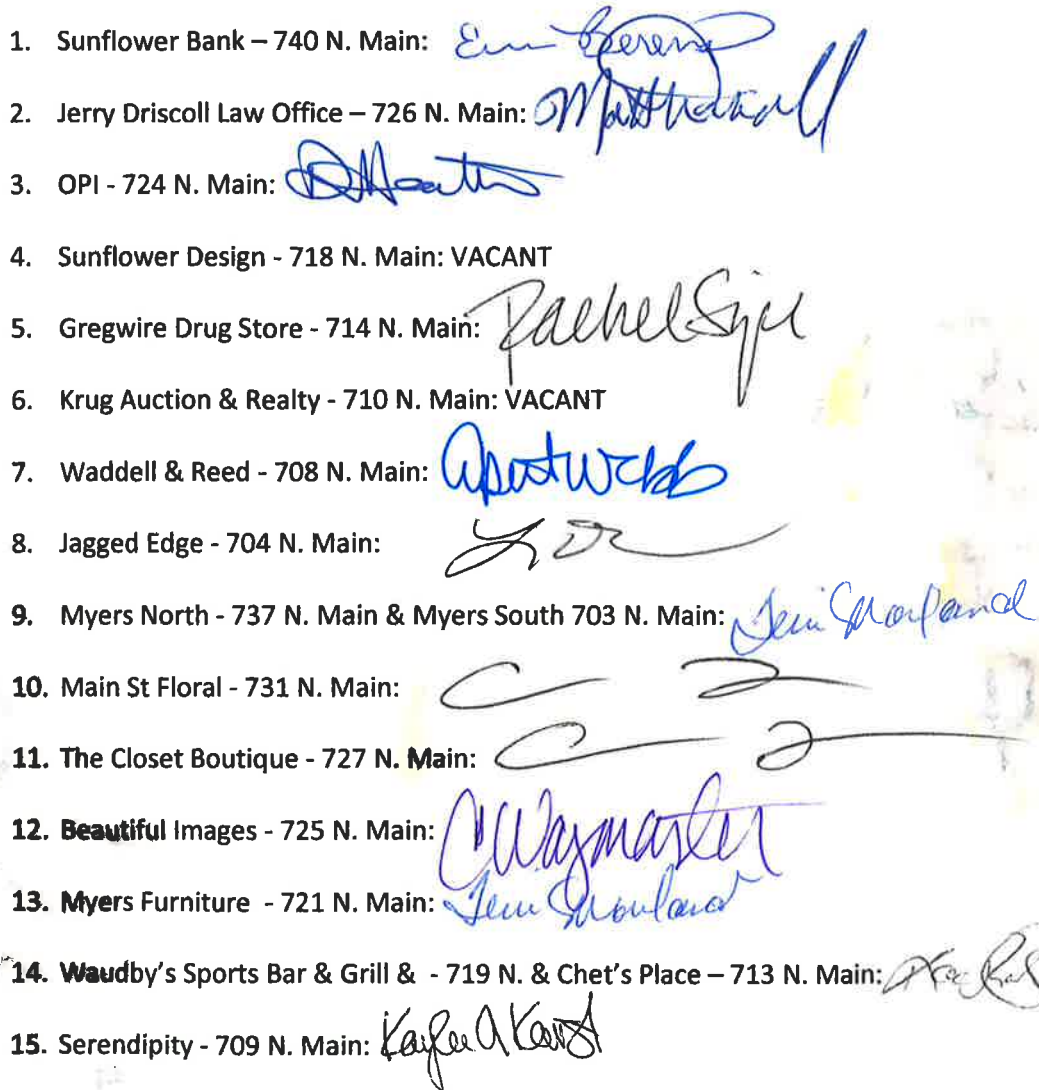 1. Sunflower Bank – 740 N. Main:
2. Jerry Driscoll Law Office – 726 N. Main:
3. OPI - 724 N. Main:
4. Sunflower Design - 718 N. Main: VACANT
5. Gregwire Drug Store - 714 N. Main: Rachel
6. Krug Auction & Realty - 710 N. Main: VACANT
7. Waddell & Reed - 708 N. Main: Webb
8. Jagged Edge - 704 N. Main:
9. Myers North - 737 N. Main & Myers South 703 N. Main:
10. Main St Floral - 731 N. Main:
11. The Closet Boutique - 727 N. Main:
12. Beautiful Images - 725 N. Main: C Waymaster
13. Myers Furniture - 721 N. Main:
14. Waudby's Sports Bar & Grill & - 719 N. & Chet's Place – 713 N. Main:
15. Serendipity - 709 N. Main: Kaylee A Karst